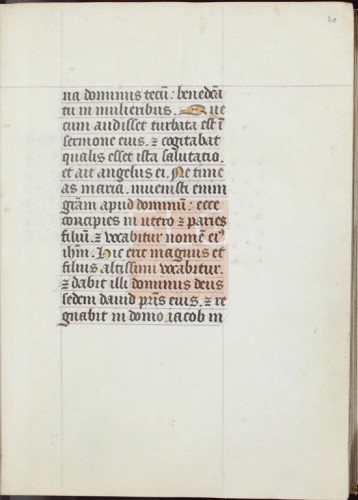 20
na dominus tecū: benedēa
tu in mulieribus. Que
cum audisset turbata est ī
sermone eius. ⁊ cogitabat
qualis esset ista salutatio.
et ait angelus ei. Ne time
as maria. inuenisti enim
grām apud dominū: ecce
concipies in utero ⁊ paries
filiū. ⁊ vocabitur nomē eiꝰ
ihm̄. Hic erit magnus et
filius altissimi vocabitur.
⁊ dabit illi dominus deus
sedem dauid pr̄is eius. ⁊ re
gnabit in domo iacob in